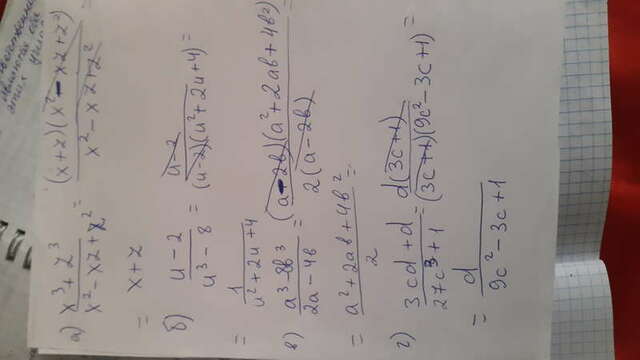 а) x³ + z³ / x² - xz + x² = (x+z)(x² - xz + z²) / x² - xz + z²
= x + z
б) u - 2 / u³ - 8 = u - 2 / (u-2)(u² + 2u + 4) =
= 1 / u² + 2u + 4
в) a³ - 8b³ / 2a - 4b = (a - 2b)(a² + 2ab + 4b²) / 2(a - 2b) =
= a² + 2ab + 4b² / 2
г) 3cd + d / 27c³ + 1 = d(3c+1) / (3c+1)(9c² - 3c + 1) =
= d / 9c² - 3c + 1